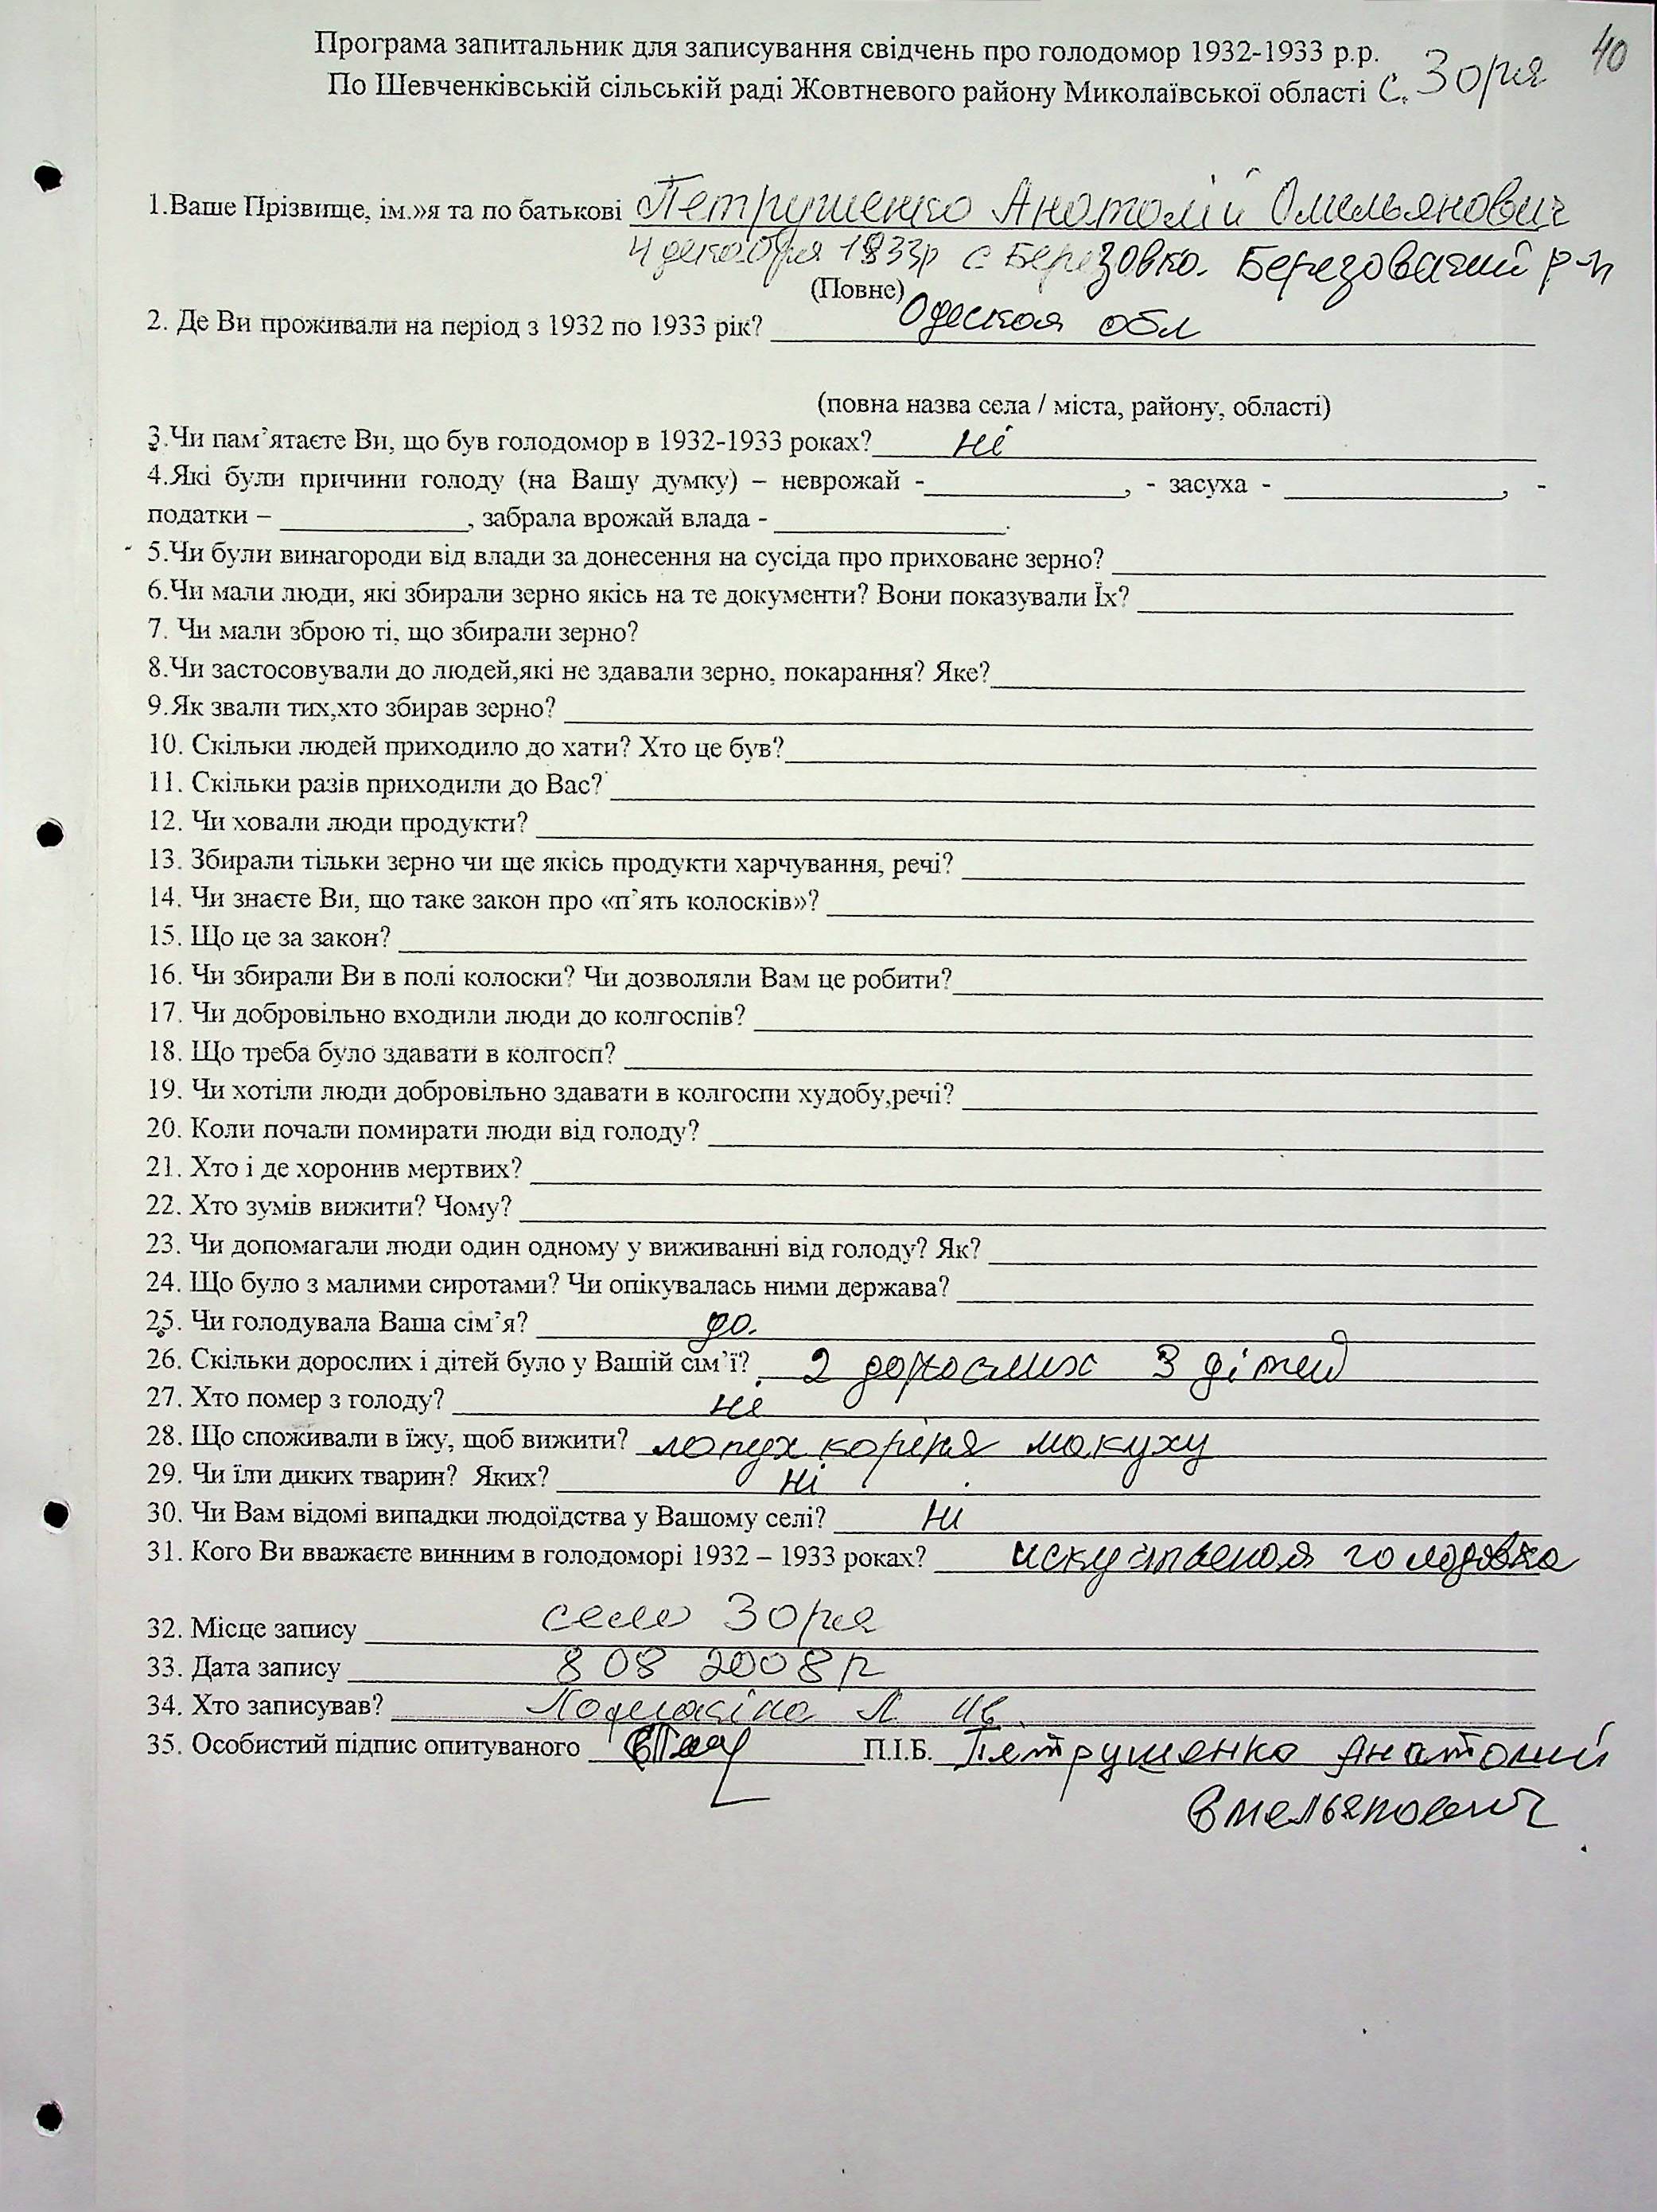 40
Програма запитальник для записування свідчень про голодомор 1932-1933 р.р.
По Шевченківській сільській раді Жовтневого району Миколаївської області с. Зоря
1.Ваше Прізвище, ім.»я та по батькові Петрушенко Анатолій Омельянович
4 декабря 1933р с Березовка. Березовский р-н
(Повне)
2. Де Ви проживали на період з 1932 по 1933 рік? Одеская обл
(повна назва села / міста, району, області)
3.Чи пам’ятаєте Ви, що був голодомор в 1932-1933 роках? ні
4.Які були причини голоду (на Вашу думку) – неврожай - , - засуха - , -
податки – , забрала врожай влада - .
5.Чи були винагороди від влади за донесення на сусіда про приховане зерно?
6.Чи мали люди, які збирали зерно якісь на те документи? Вони показували Їх?
7. Чи мали зброю ті, що збирали зерно?
8.Чи застосовували до людей,які не здавали зерно, покарання? Яке?
9.Як звали тих,хто збирав зерно?
10. Скільки людей приходило до хати? Хто це був?
11. Скільки разів приходили до Вас?
12. Чи ховали люди продукти?
13. Збирали тільки зерно чи ще якісь продукти харчування, речі?
14. Чи знаєте Ви, що таке закон про «п’ять колосків»?
15. Що це за закон?
16. Чи збирали Ви в полі колоски? Чи дозволяли Вам це робити?
17. Чи добровільно входили люди до колгоспів?
18. Що треба було здавати в колгосп?
19. Чи хотіли люди добровільно здавати в колгоспи худобу,речі?
20. Коли почали помирати люди від голоду?
21. Хто і де хоронив мертвих?
22. Хто зумів вижити? Чому?
23. Чи допомагали люди один одному у виживанні від голоду? Як?
24. Що було з малими сиротами? Чи опікувалась ними держава?
25. Чи голодувала Ваша сім’я? да.
26. Скільки дорослих і дітей було у Вашій сім’ї? 2 дорослих 3 дітей
27. Хто помер з голоду? ні
28. Що споживали в їжу, щоб вижити? лопух коріня макуху
29. Чи їли диких тварин? Яких? ні
30. Чи Вам відомі випадки людоїдства у Вашому селі? Ні
31. Кого Ви вважаєте винним в голодоморі 1932 – 1933 роках? искуственая голодовка
32. Місце запису село Зоря
33. Дата запису 8 08 2008р
34. Хто записував? Л. Ив.
35. Особистий підпис опитуваного П.І.Б. Петрушенко Анатолий
Емельянович